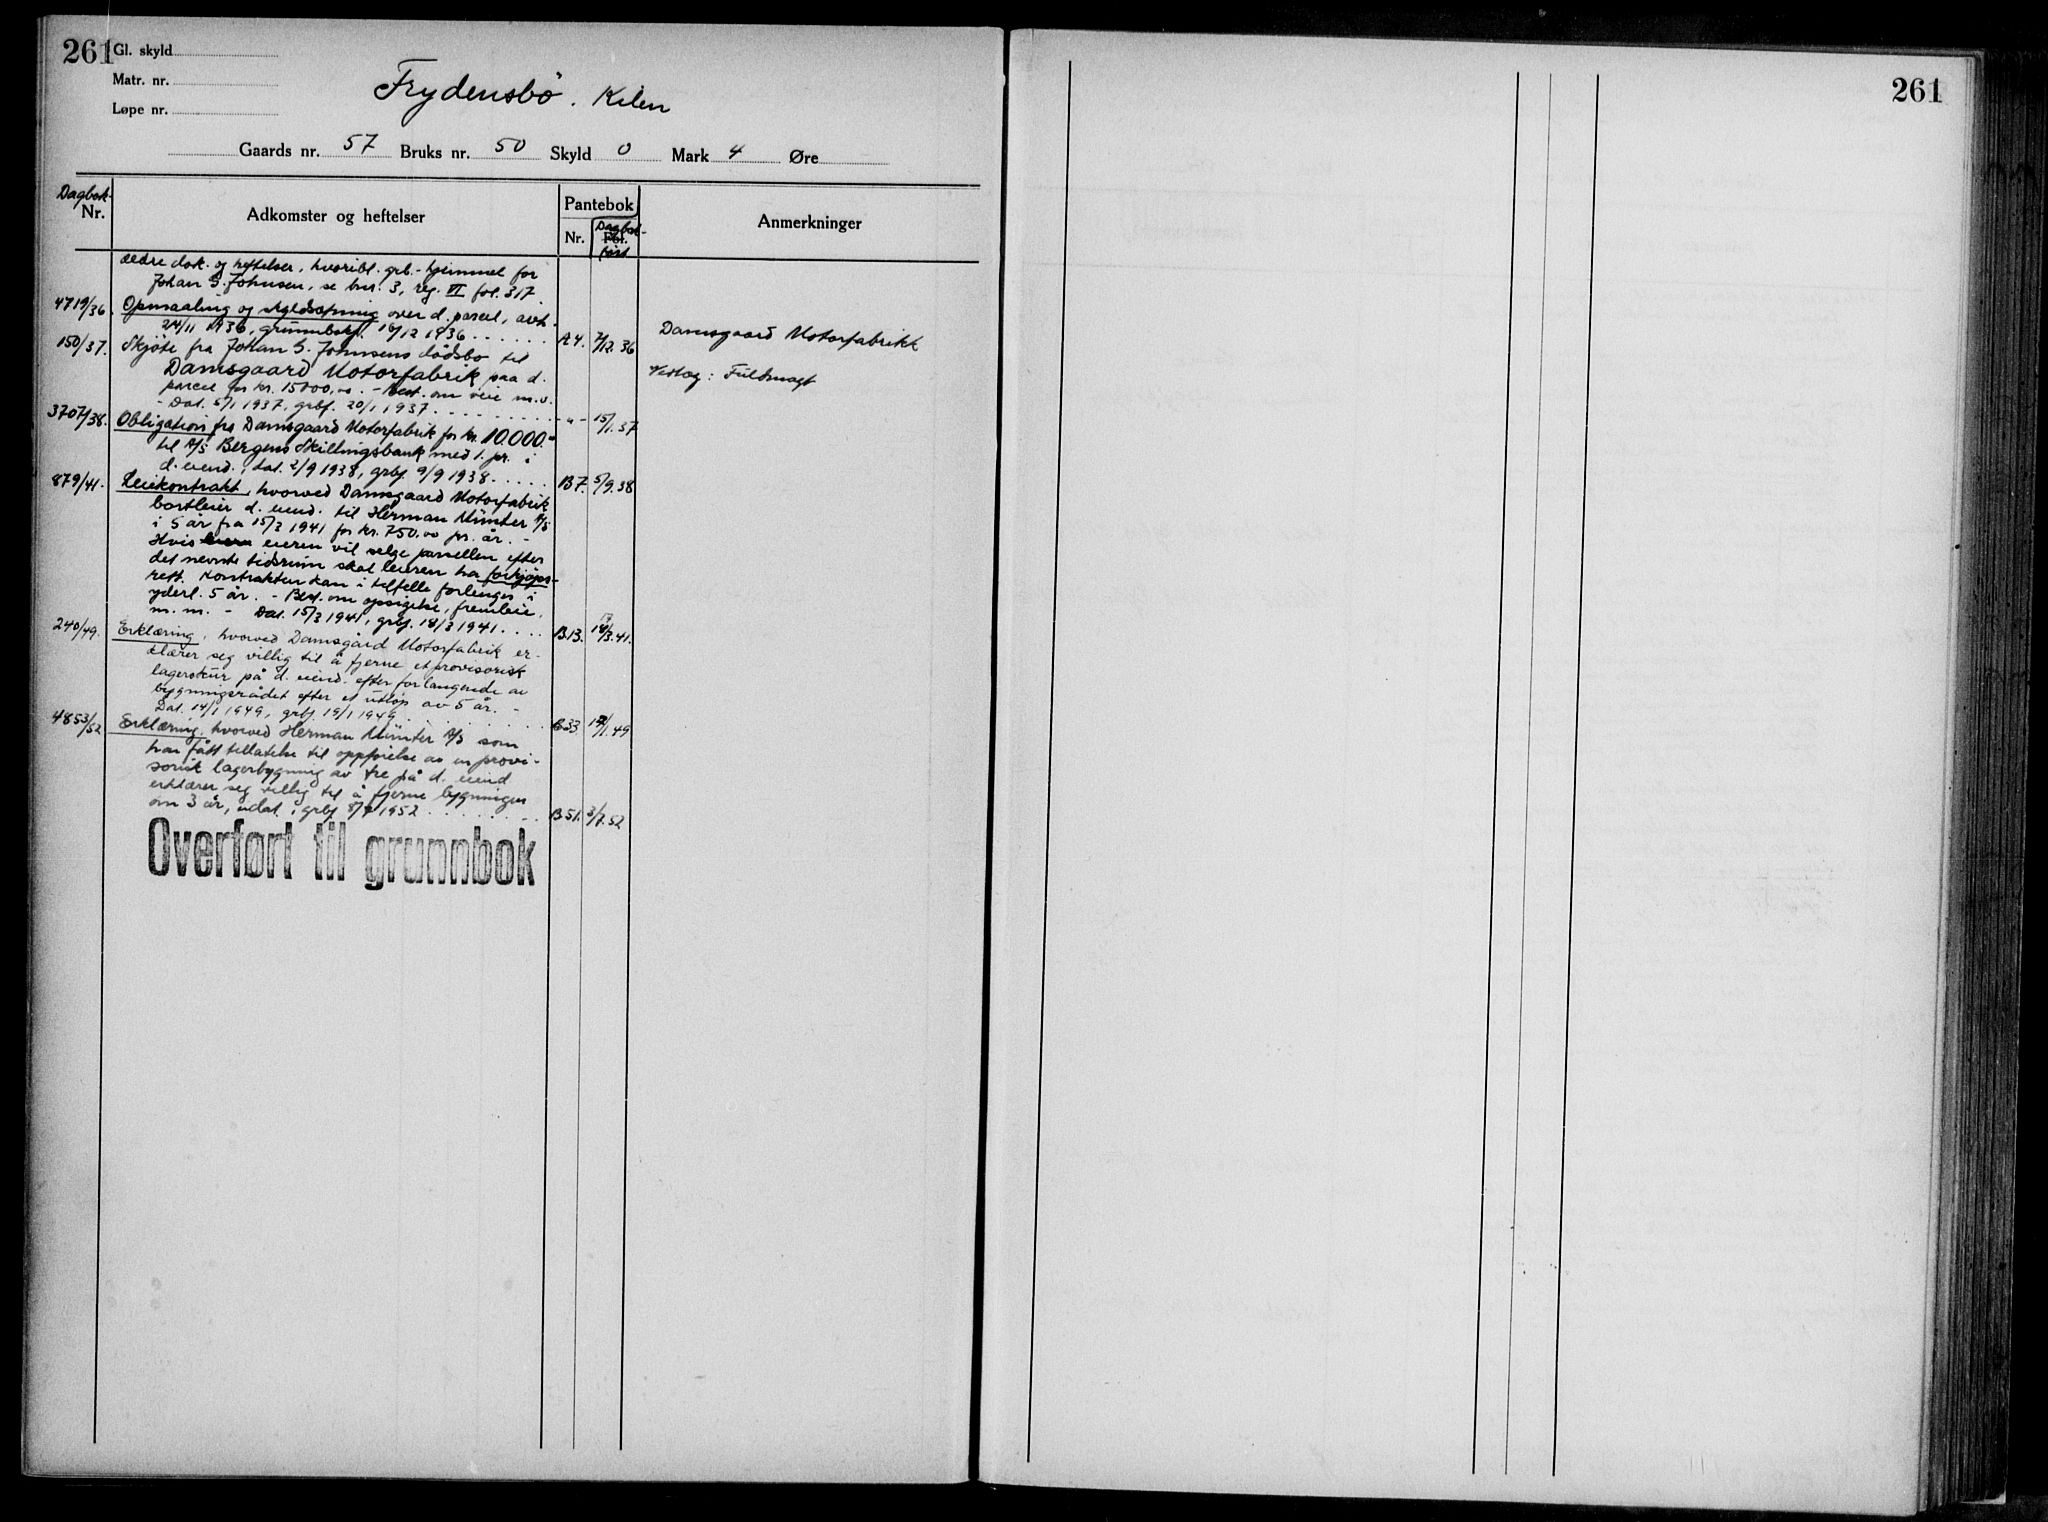 261
Gl. skyld
Matr. nr.
Løpe nr.
Frydensbö. Kilen
Gaards nr. 57 Bruks nr. 50 Skyld 0 Mark 4 Øre
Dagbok-
Nr.
Adkomster og heftelser
Pantebok
Nr.
Fol.
Dagbok-
ført
Anmerkninger
ældre dok. og heftelser, hvoribl. grb.-hjemmel for
Johan G. Johnsen, se bnr. 3, reg. VI fol. 317.
4719/36. Opmaaling og skyldsætning over d. parcel, avh.
24/11 1936, grunnboksf. 16/12 1936 . . . . . . A 4. 12.36
Damsgaard Motorfabrikk
150/37. Skjöte fra Johan G. Johnsens dödsbo til
Damsgaard Motorfabrik paa d.
Vedlæg: Fuldmagt
parcel for kr. 15000,00. - Best. om veie m.v.
- Dat. 5/1 1937, grbf. 20/1 1937 . . . . . . . . - " - 15/1.37
3707/38. Obligation fra Damsgaard Motorfabrik for kr. 10.000.-
til A/S Bergens Skillingsbank med 1. pr. i
d. eiend., dat. 2/9 1938, grbf. 9/9 1938 . . . . . B 7. 5/9.38
879/41. Leiekontrakt, hvorved Damsgaard Motorfabrik
bortleier d. eiend. til Herman Münter A/S
i 5 år fra 15/3 1941 for kr. 750.00 pr. år. -
Hvis eieren vil selge parsellen efter
det nevnte tidsrum skal leieren ha forkjöps-
rett. Kontrakten kan i tilfelle forlenges i
yderl. 5 år. - Best. om opsigelse, fremleie
m. m. - Dat. 15/3 1941, grbf. 18/3 1941 . . . . B.13. 3.41.
240/49. Erklæring, hvorved Damsgård Motorfabrik er-
klærer seg villig til å fjerne et provisorisk
lagerskur på d. eiend. efter forlangende av
bygningsrådet efter et utløp av 5 år. -
Dat. 14/1 1949, grbf. 19/1 1949 . . . . . . . . B33. 1.49
4853/52 Erklæring, hvorved Herman Münter A/S som
har fått tillatelse til oppförelse av en provi-
sorisk lagerbygning av tre på d. eiend
erklærer seg villig til å fjerne bygningen
om 3 år, udat., grbf 8/7 1952 . . . . . . . . B 51. 3/7.52
Overført til grunnbok
261